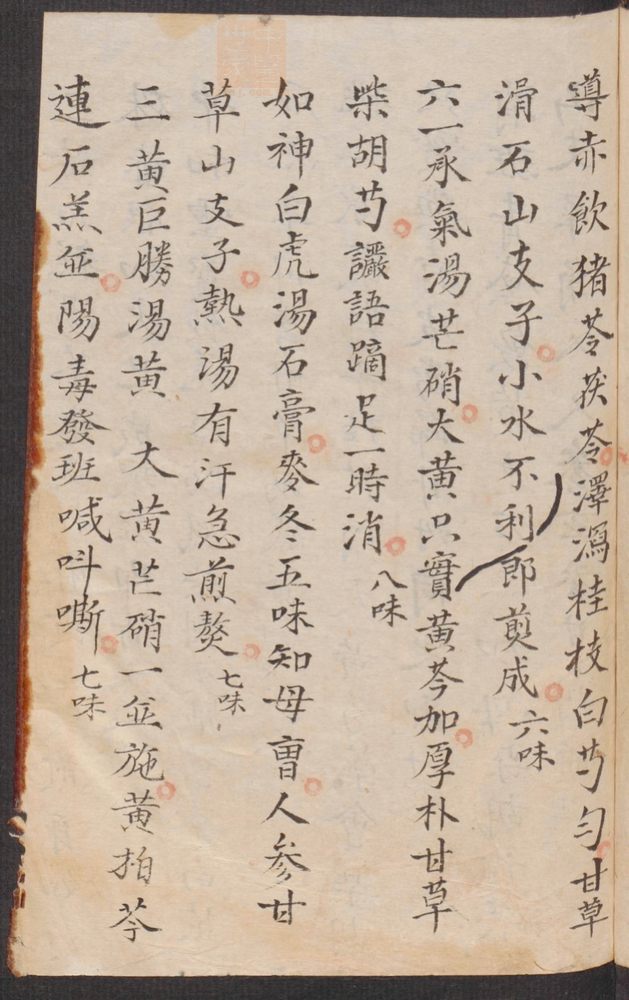 導赤飲猪苓茯苓澤瀉桂枝白芍勻甘草
滑石山支子小水不利即煎成六味
六一承氣湯芒硝大黃只實黃芩加厚朴甘草
柴胡芍讝語躏足一時消八味
如神白虎湯石膏麥冬五味知母曺人參甘
草山支子熱湯有汗急煎熬七味
三黃巨勝湯黃大黃芒硝一並施黃柏芩
連石羔並陽毒發班喊呌嘶七味